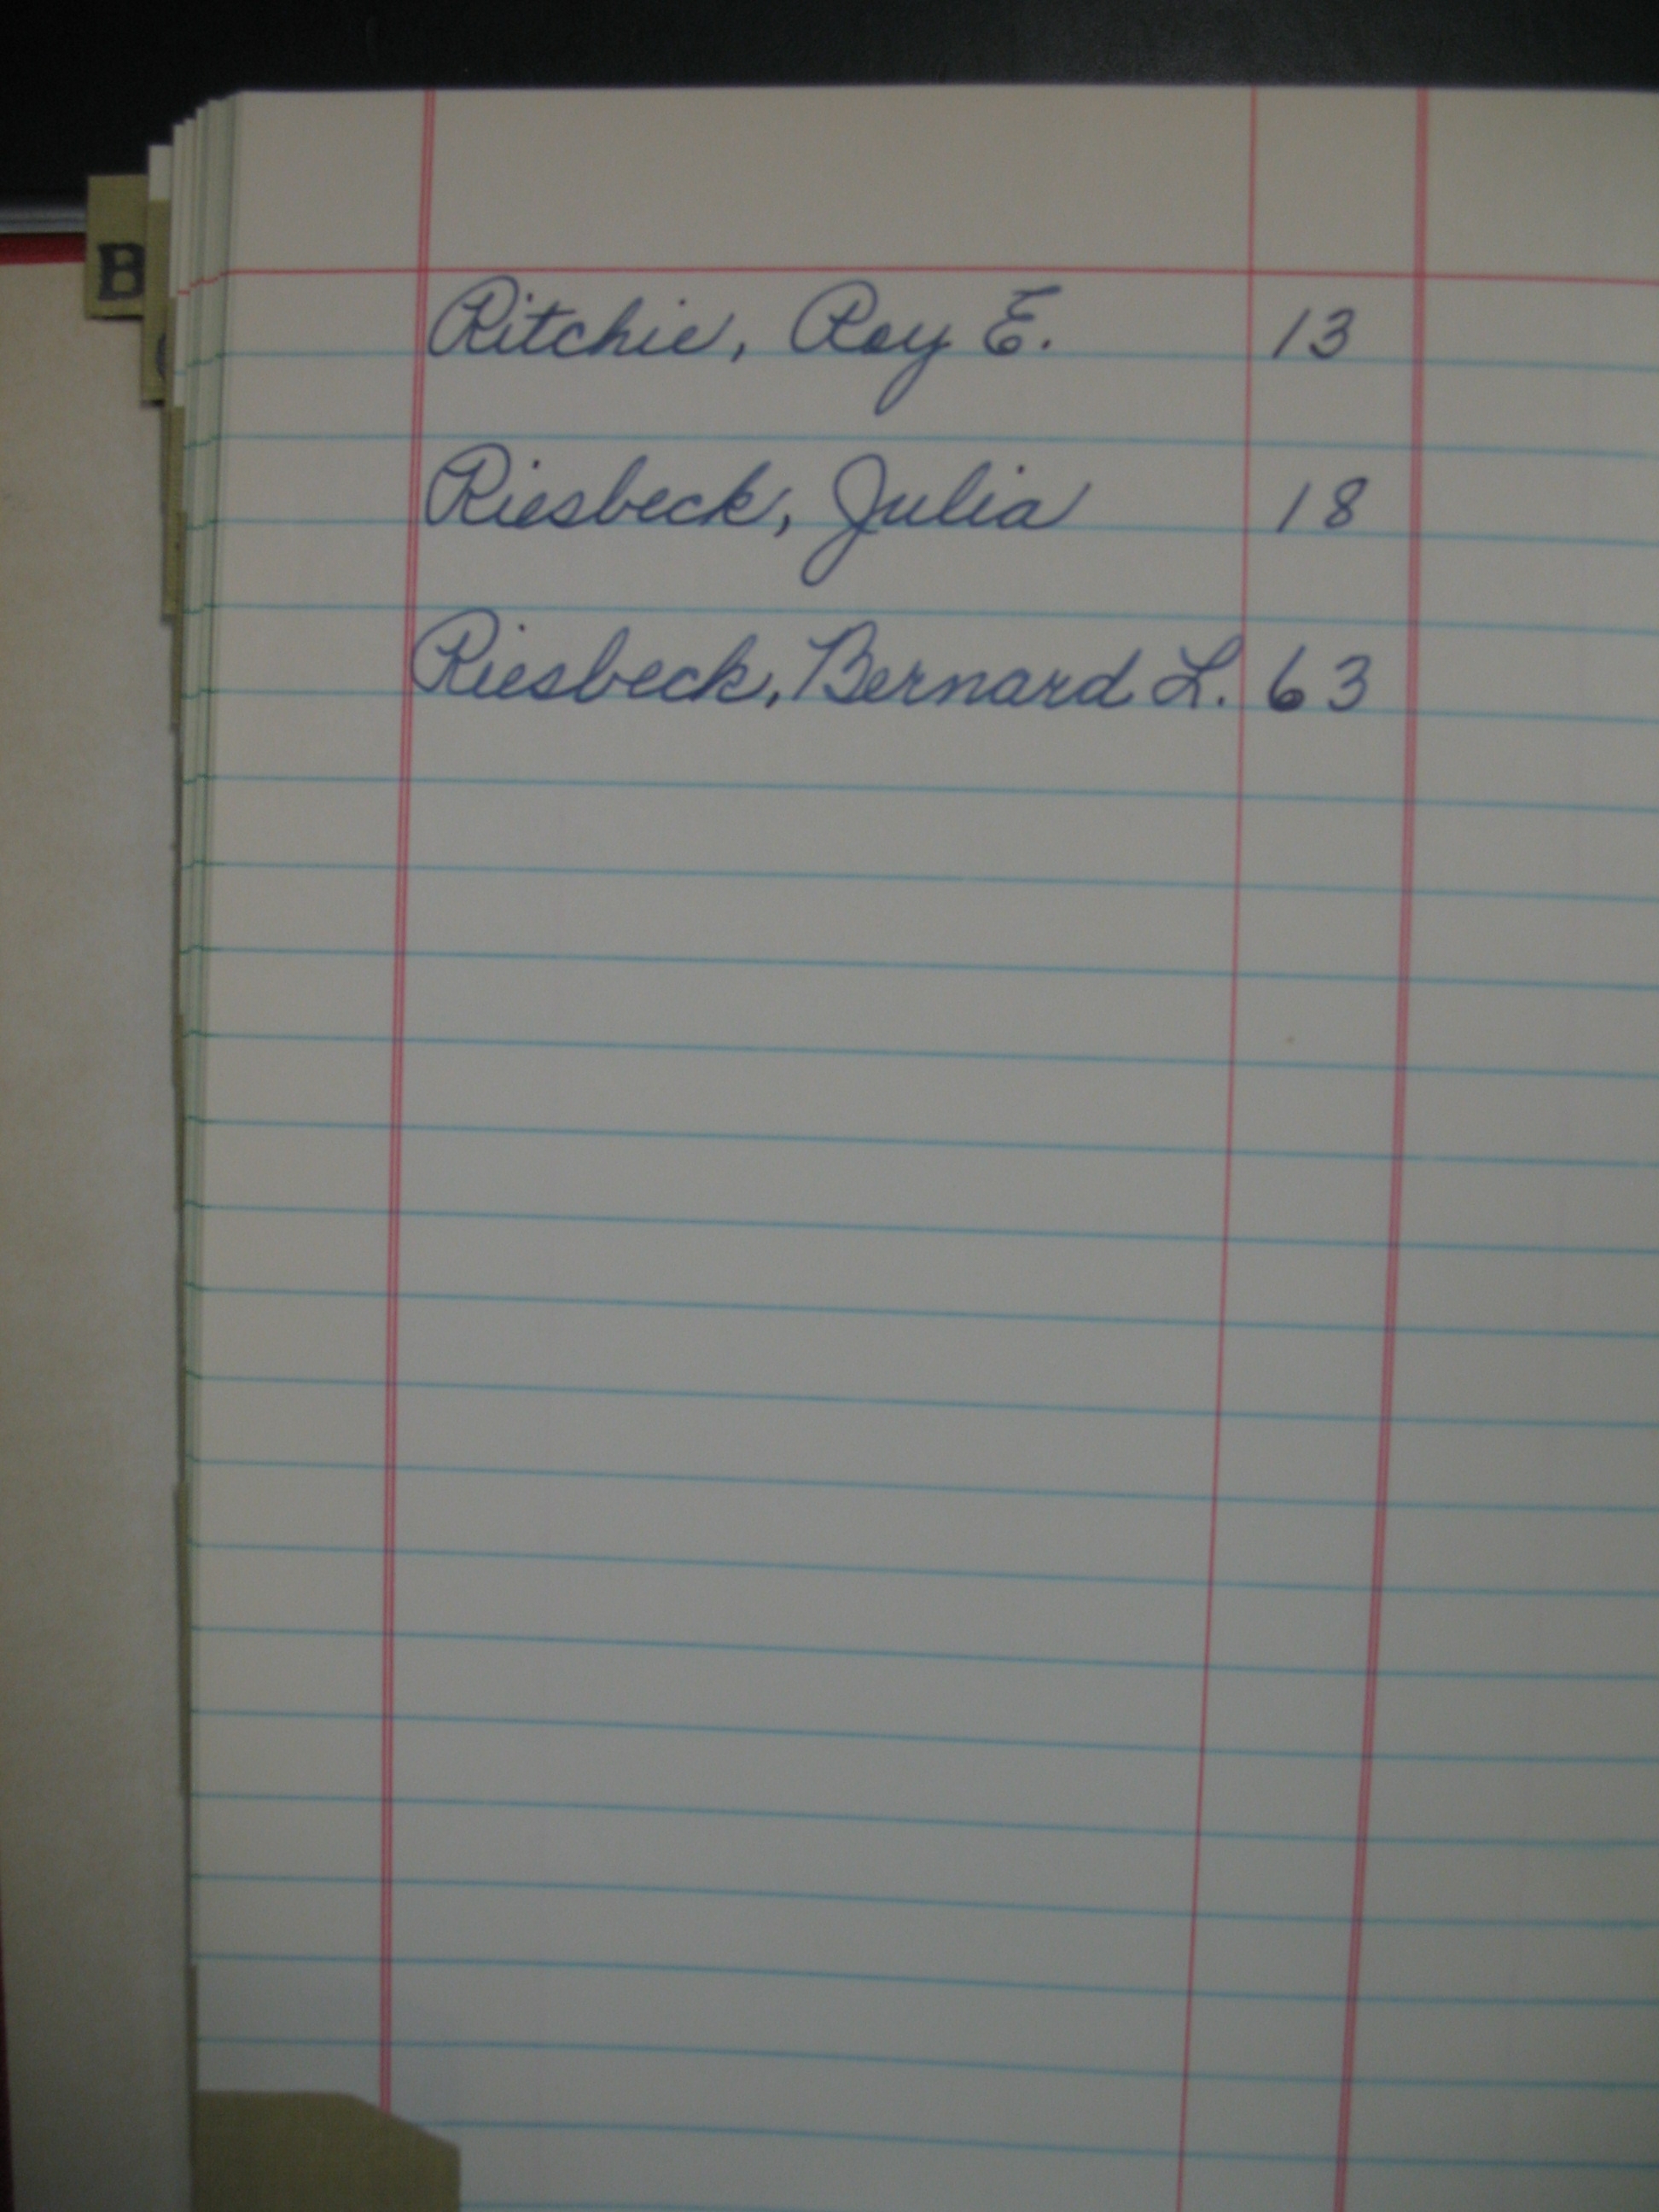 B
Ritchie, Roy E. 13
Riesbeck, Julia 18
Riesbeck, Bernard L. 63